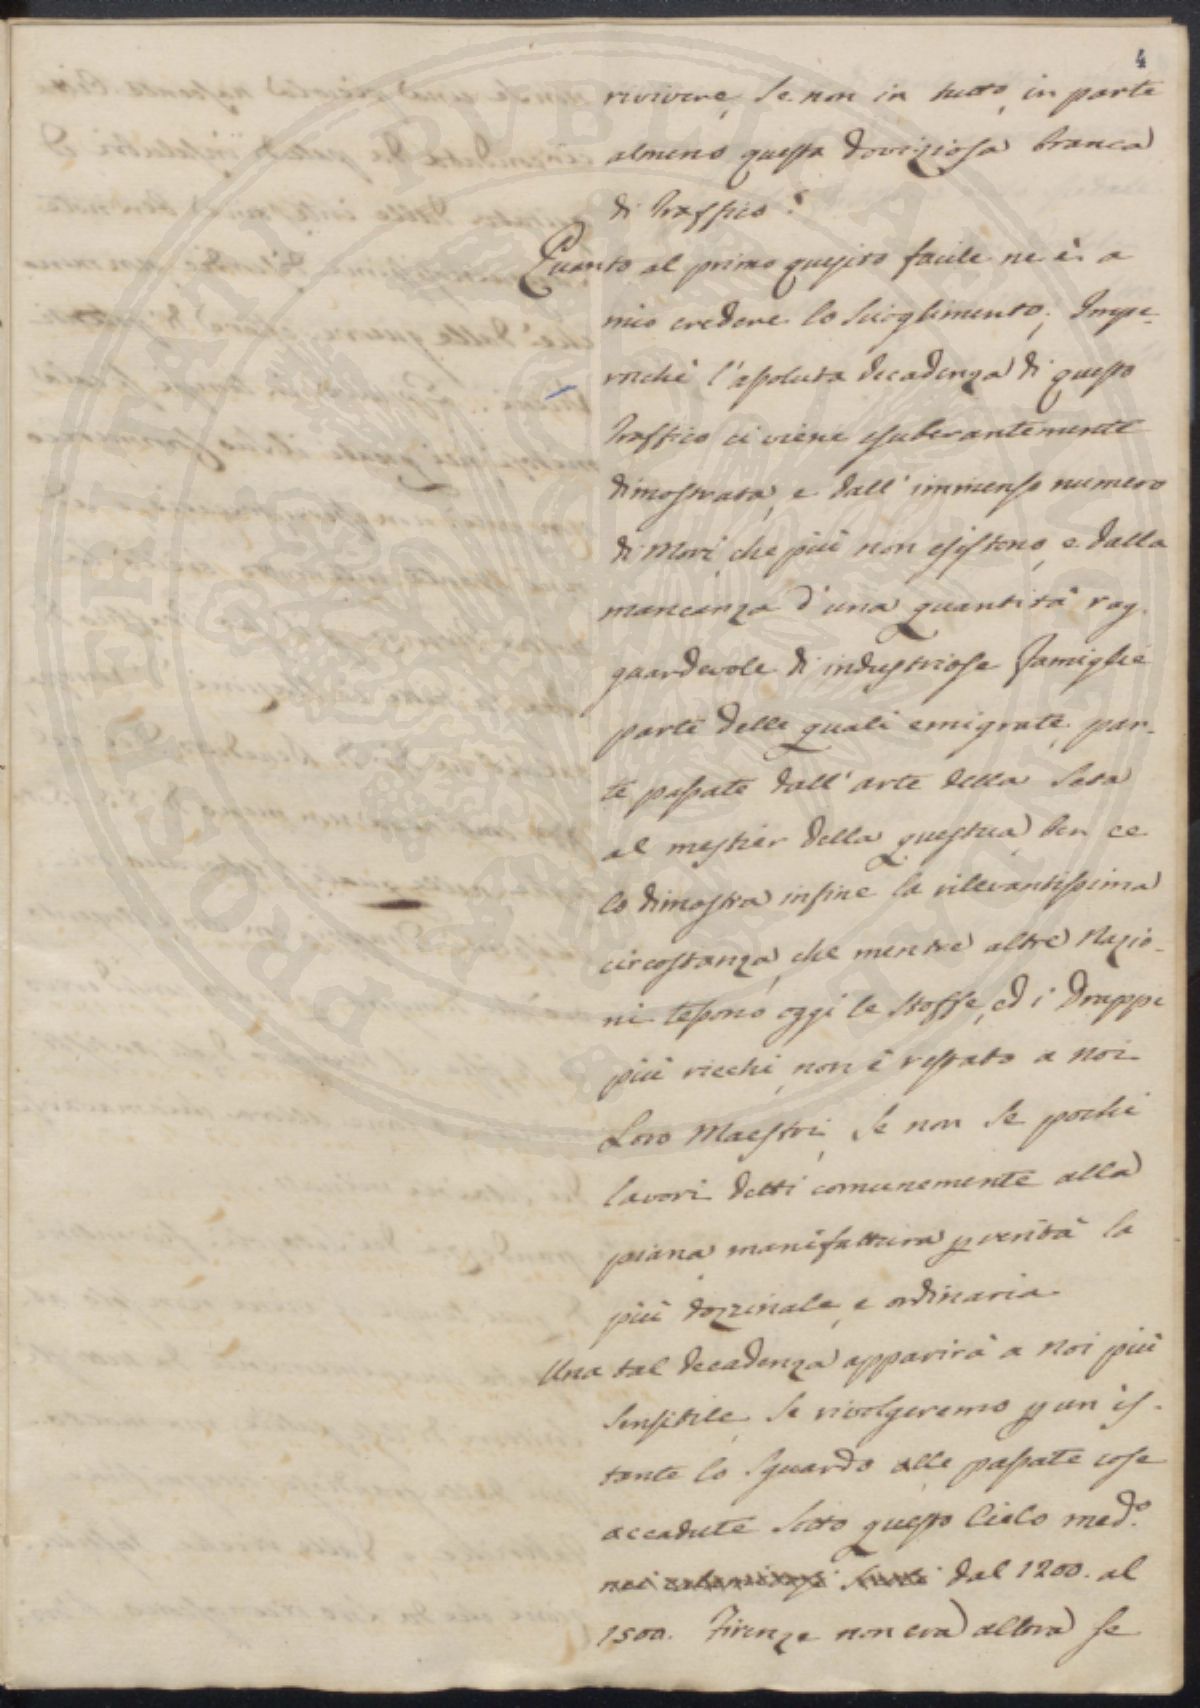 4
rivivere, se non in tutto, in parte
almeno questa doviziosa branca
di traffico?
Quanto al primo quesito facile ne è a
mio credere lo scioglimento; Impe-
rochè l'assoluta decadenza di questo
traffico ci viene esuberantemente
dimostrata, e dall' immenso numero
di Mori, che più non esistono, e dalla
mancanza d'una quantità rag-
guardevole di industriose famiglie
parte delle quali emigrate, par-
te passate dall'arte della Seta
al mestier della questua, ben ce
lo dimostra infine la rilevantissima
circostanza, che mentre altre Nazio-
ni tessono oggi le stoffe, ed i Drappi
più ricchi, non è restato a noi
Loro Maestri, se non se pochi
lavori detti comunemente alla
piana manifattura p verità la
più dozzinale, e ordinaria.
Una tal decadenza apparirà a noi più
sensibile, se rivolgeremo p un is-
tante lo sguardo alle passate cose
accadute sotto questo Cielo med.o
dal 1200. al
1500. Firenze non era allora se